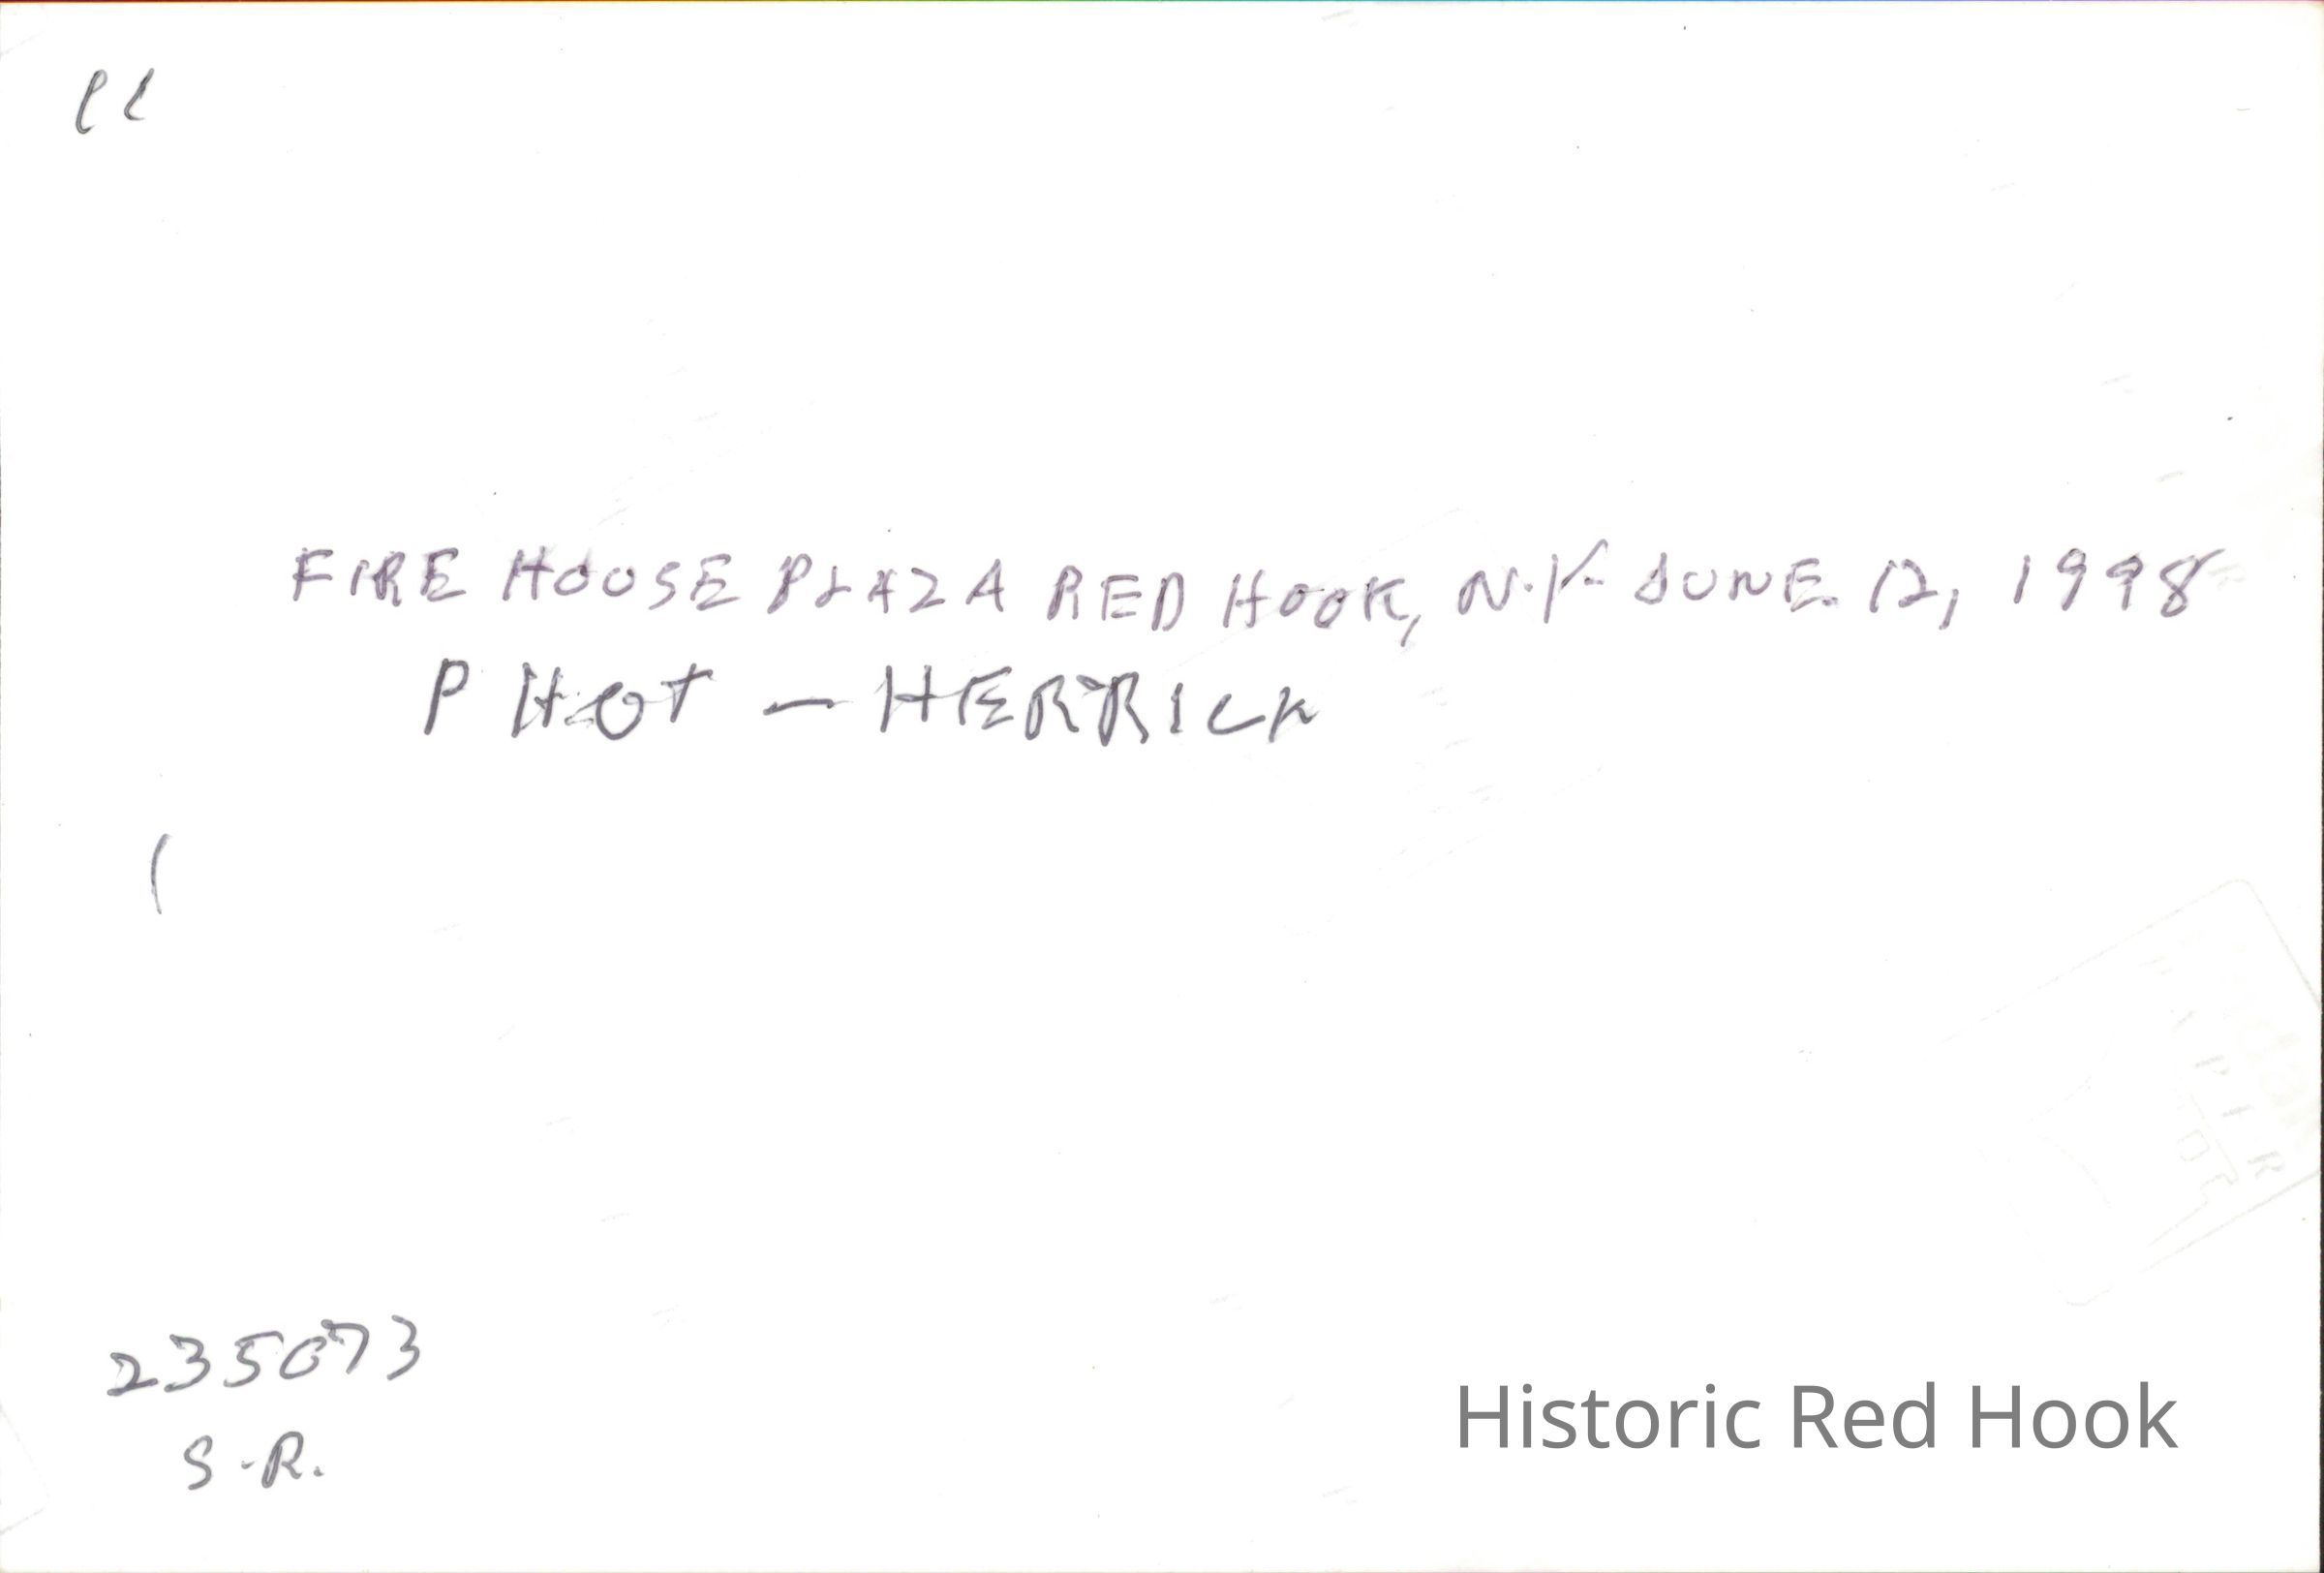 FIRE HOUSE PLAZA RED HOOK, N.Y. JUNE 12, 1998
PHOT - HERRICK
235073
S.R.
Historic Red Hook